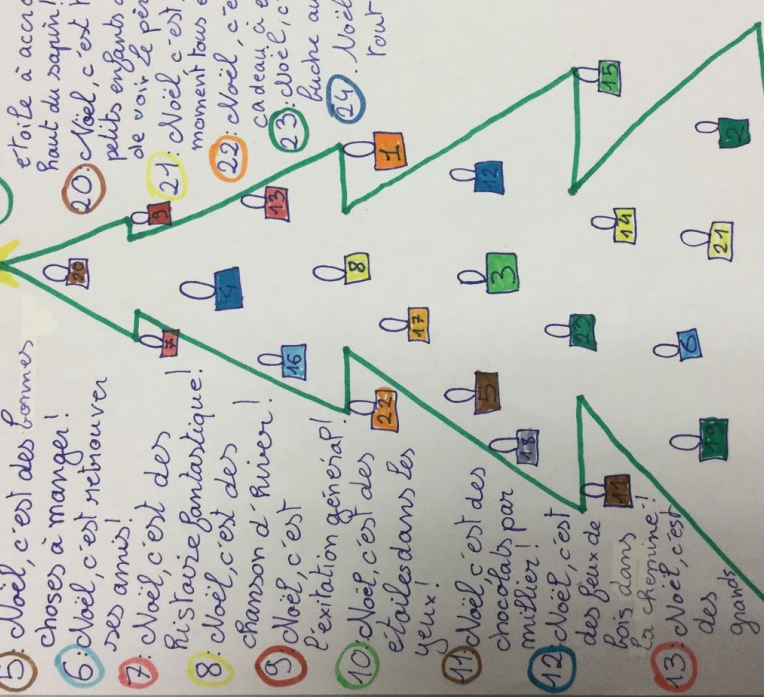 5: Noël, c'est des bonnes
choses à manger!
6: Noël, c'est retrouver
ses amis!
7: Noël, c'est des
histoire fantastique!
8: Noël, c'est des
chanson d'hiver!
9: Noël, c'est
l'exitation général!
10: Noël, c'est des
étoiles dans les
yeux!
11: Noël, c'est des
chocolats par
millier!
12: Noël, c'est
des feux de
bois dans
la cheminé!
13: Noël, c'est
des
grands
étoile à accro
haut du sapin!
20: Noël, c'est
petits enfants
de voir le pèr
21: Noël c'est
moment tous
22: Noël, c'e
cadeau à
23: Noël, c
buche au
24: Noël
20
9
7
13
4
16
1
8
17
22
12
3
5
18
15
14
23
11
2
21
6
19